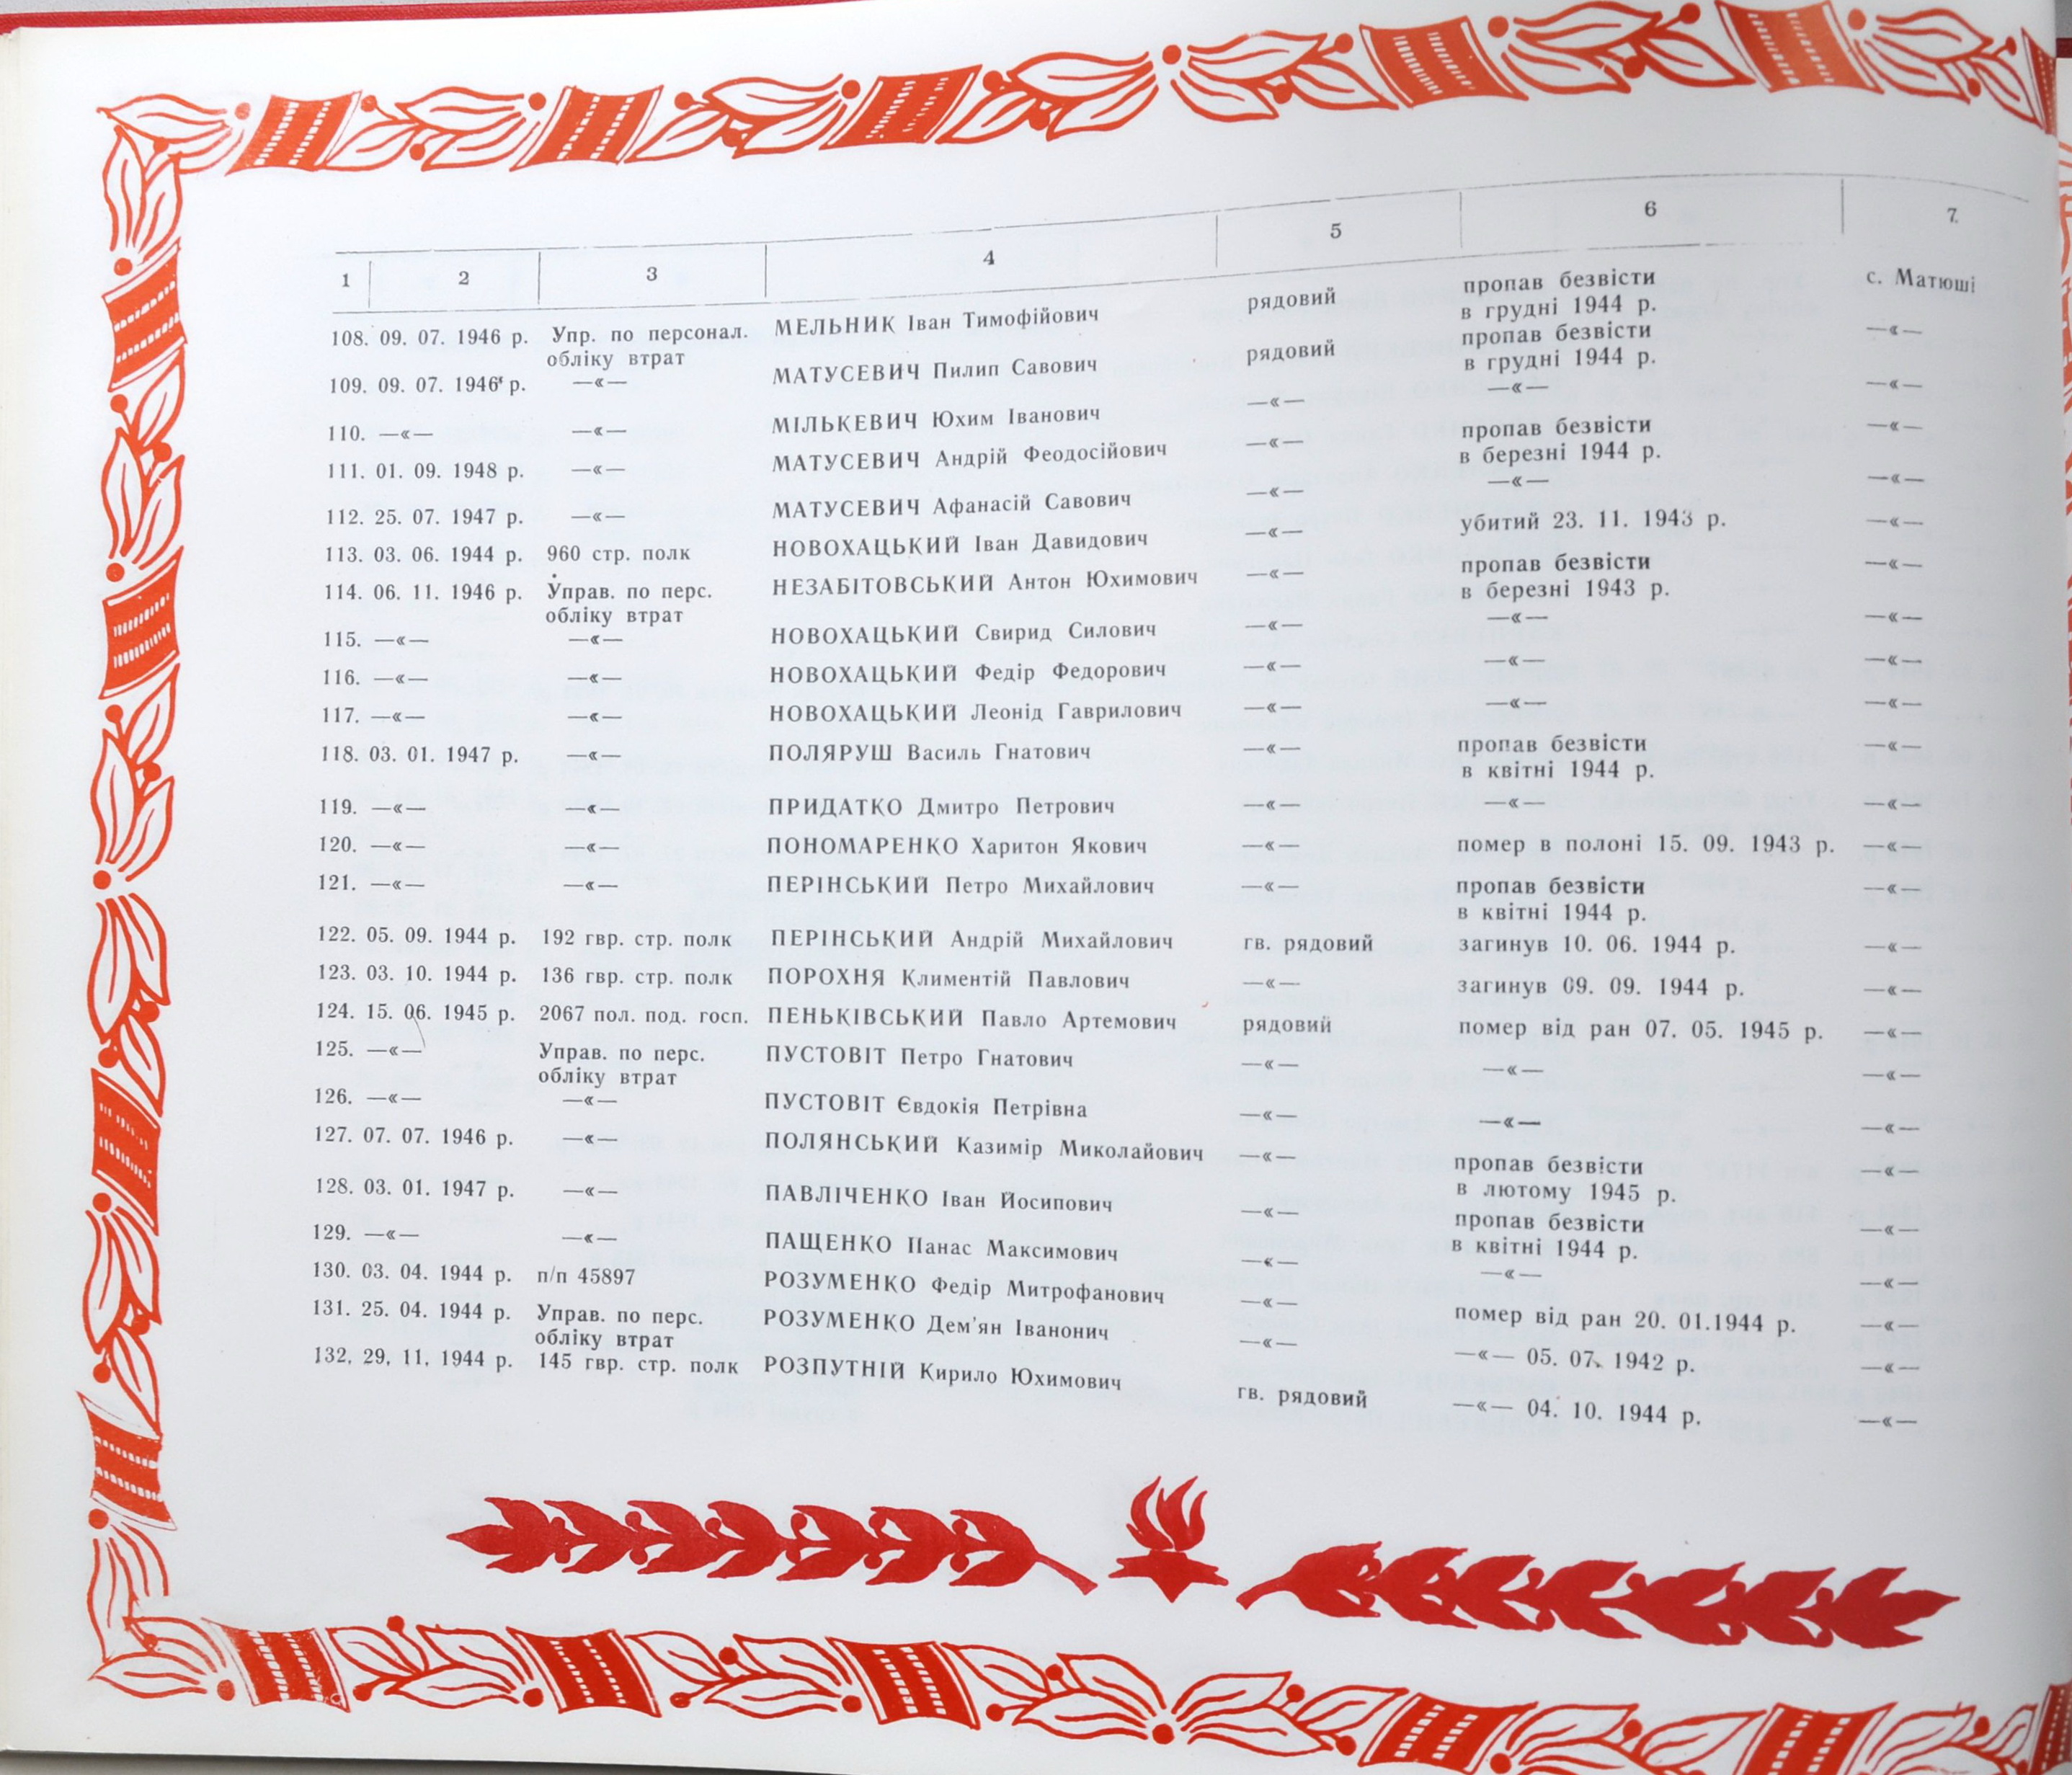 1 2 3 4 5 6 7
108. 09. 07. 1946 р. Упр. по персонал. МЕЛЬНИК Іван Тимофійович рядовий пропав безвісти с. Матюші
обліку втрат в грудні 1944 р.
109. 09. 07. 1946 р. —«— МАТУСЕВИЧ Пилип Савович рядовий пропав безвісти —«—
в грудні 1944 р.
110. —«— —«— МІЛЬКЕВИЧ Юхим Іванович —«— —«— —«—
111. 01. 09. 1948 р. —«— МАТУСЕВИЧ Андрій Феодосійович —«— пропав безвісти —«—
в березні 1944 р.
112. 25. 07. 1947 р. —«— МАТУСЕВИЧ Афанасій Савович —«— —«— —«—
113. 03. 06. 1944 р. 960 стр. полк НОВОХАЦЬКИЙ Іван Давидович —«— убитий 23. 11. 1943 р. —«—
114. 06. 11. 1946 р. Управ. по перс. НЕЗАБІТОВСЬКИЙ Антон Юхимович —«— пропав безвісти —«—
обліку втрат в березні 1943 р.
115. —«— —«— НОВОХАЦЬКИЙ Свирид Силович —«— —«— —«—
116. —«— —«— НОВОХАЦЬКИЙ Федір Федорович —«— —«— —«—
117. —«— —«— НОВОХАЦЬКИЙ Леонід Гаврилович —«— —«— —«—
118. 03. 01. 1947 р. —«— ПОЛЯРУШ Василь Гнатович —«— пропав безвісти —«—
в квітні 1944 р.
119. —«— —«— ПРИДАТКО Дмитро Петрович —«— —«— —«—
120. —«— —«— ПОНОМАРЕНКО Харитон Якович —«— помер в полоні 15. 09. 1943 р. —«—
121. —«— —«— ПЕРІНСЬКИЙ Петро Михайлович —«— пропав безвісти —«—
в квітні 1944 р.
122. 05. 09. 1944 р. 192 гвр. стр. полк ПЕРІНСЬКИЙ Андрій Михайлович гв. рядовий загинув 10. 06. 1944 р. —«—
123. 03. 10. 1944 р. 136 гвр. стр. полк ПОРОХНЯ Климентій Павлович —«— загинув 09. 09. 1944 р. —«—
124. 15. 06. 1945 р. 2067 пол. под. госп. ПЕНЬКІВСЬКИЙ Павло Артемович рядовий помер від ран 07. 05. 1945 р. —«—
125. —«— Управ. по перс. ПУСТОВІТ Петро Гнатович —«— —«— —«—
обліку втрат
126. —«— —«— ПУСТОВІТ Євдокія Петрівна —«— —«— —«—
127. 07. 07. 1946 р. —«— ПОЛЯНСЬКИЙ Казимір Миколайович —«— пропав безвісти —«—
в лютому 1945 р.
128. 03. 01. 1947 р. —«— ПАВЛІЧЕНКО Іван Йосипович —«— пропав безвісти —«—
в квітні 1944 р.
129. —«— —«— ПАЩЕНКО Панас Максимович —«— —«— —«—
130. 03. 04. 1944 р. п/п 45897 РОЗУМЕНКО Федір Митрофанович —«— помер від ран 20. 01.1944 р. —«—
131. 25. 04. 1944 р. Управ. по перс. РОЗУМЕНКО Дем'ян Іванонич —«— —«— 05. 07. 1942 р. —«—
обліку втрат
132, 29, 11, 1944 р. 145 гвр. стр. полк РОЗПУТНІЙ Кирило Юхимович гв. рядовий —«— 04. 10. 1944 р. —«—